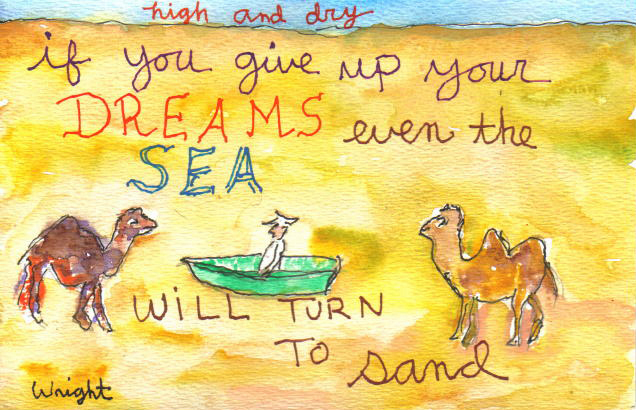 high and dry
if you give up your
DREAMS even the
SEA
WiLL TURN
TO sand
Wright